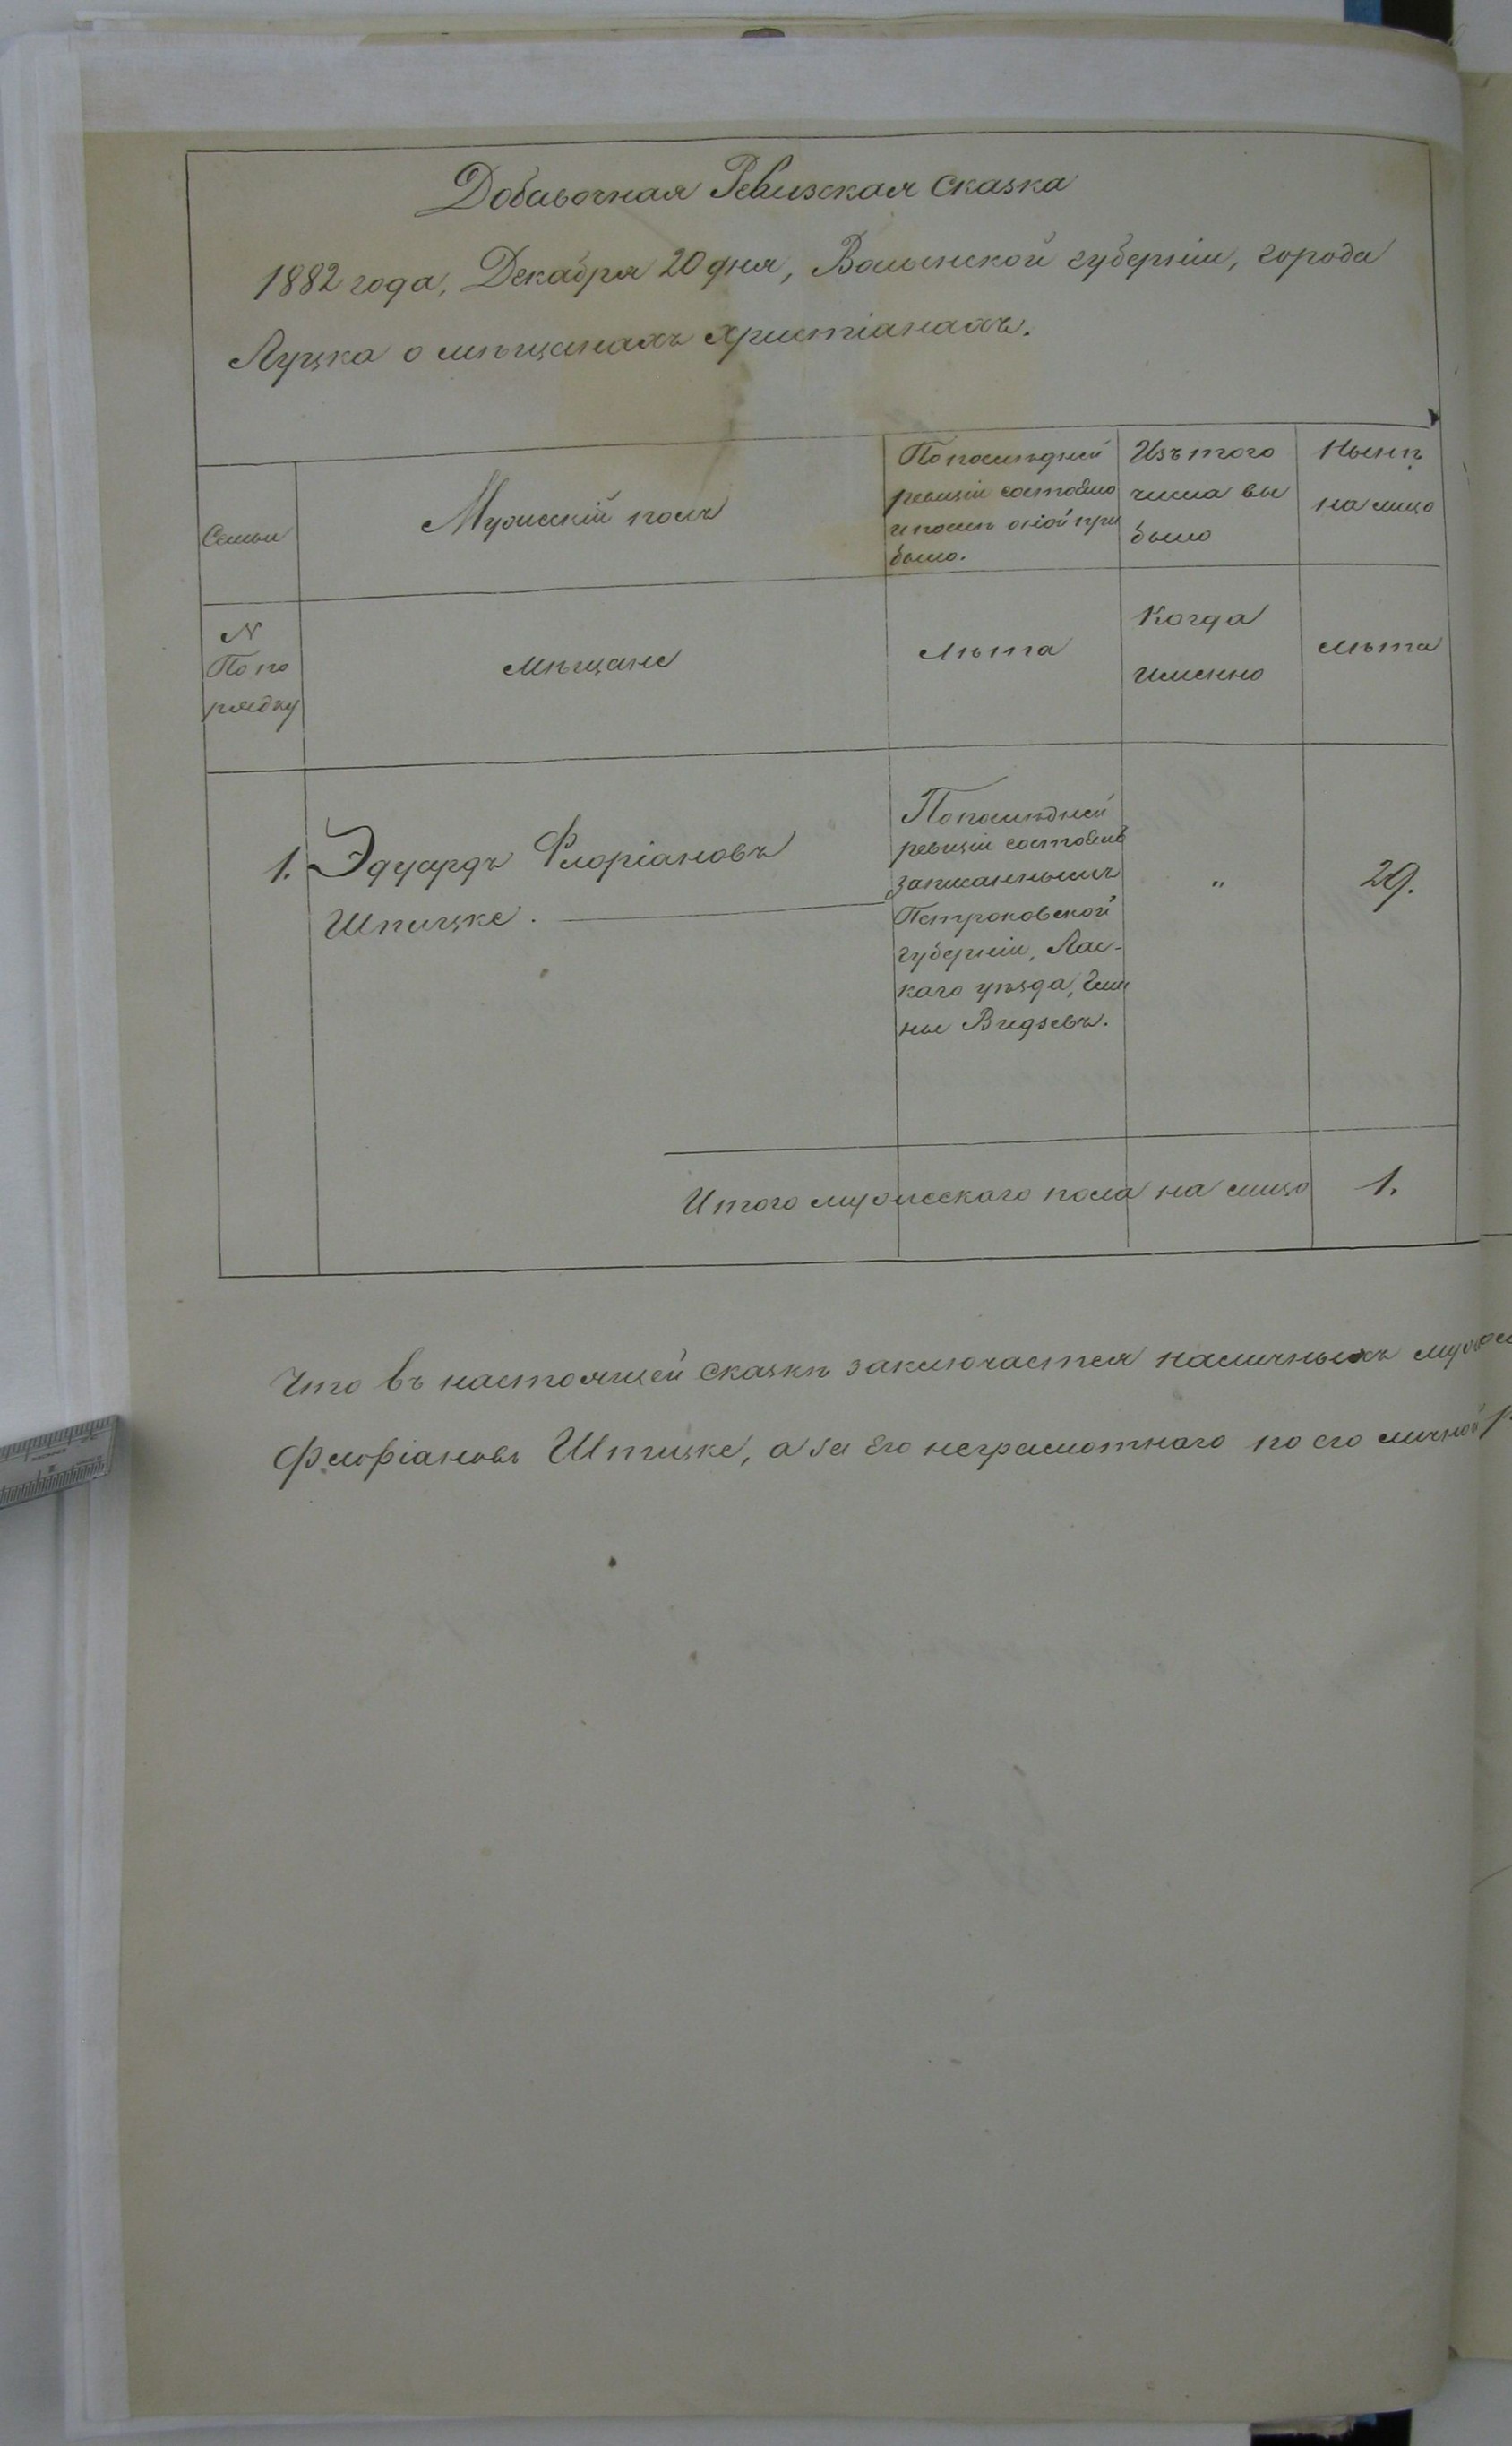 Добавочная Ревизская сказка
1882 года, Декабря 20 дня, Волынской губерніи, города
Луцка о мѣщанахъ христіанахъ.
Семьи
Мужескій полъ
По послѣдней
ревизіи состояло
и послѣ оной при
было.
Изъ того
числа вы
было
Нынѣ
на лицо
№
По по
рядку
мѣщане
лѣта
Когда
именно
лѣта
1.
Эдуардъ Флоріановъ
Шпицке.
По послѣдней
ревизіи состоялъ
записаннымъ
Петроковской
губерніи, Лас-
каго уѣзда, гми
ны Видзевъ.
"
29.
Итого мужескаго пола на лицо 1.
Что въ настоящей сказкѣ заключается наличныхъ
Флоріановъ Шпицке, а за его неграмотнаго по его личной